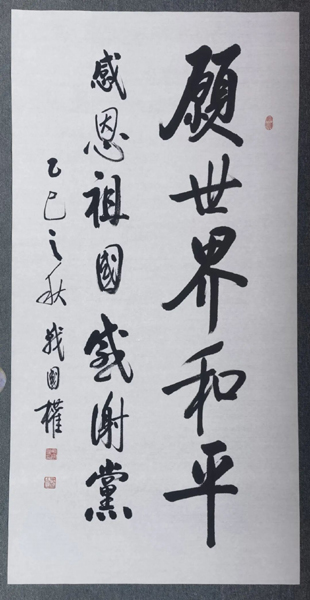 願世界和平
感恩祖國感谢黨
乙巳之秋戰國權